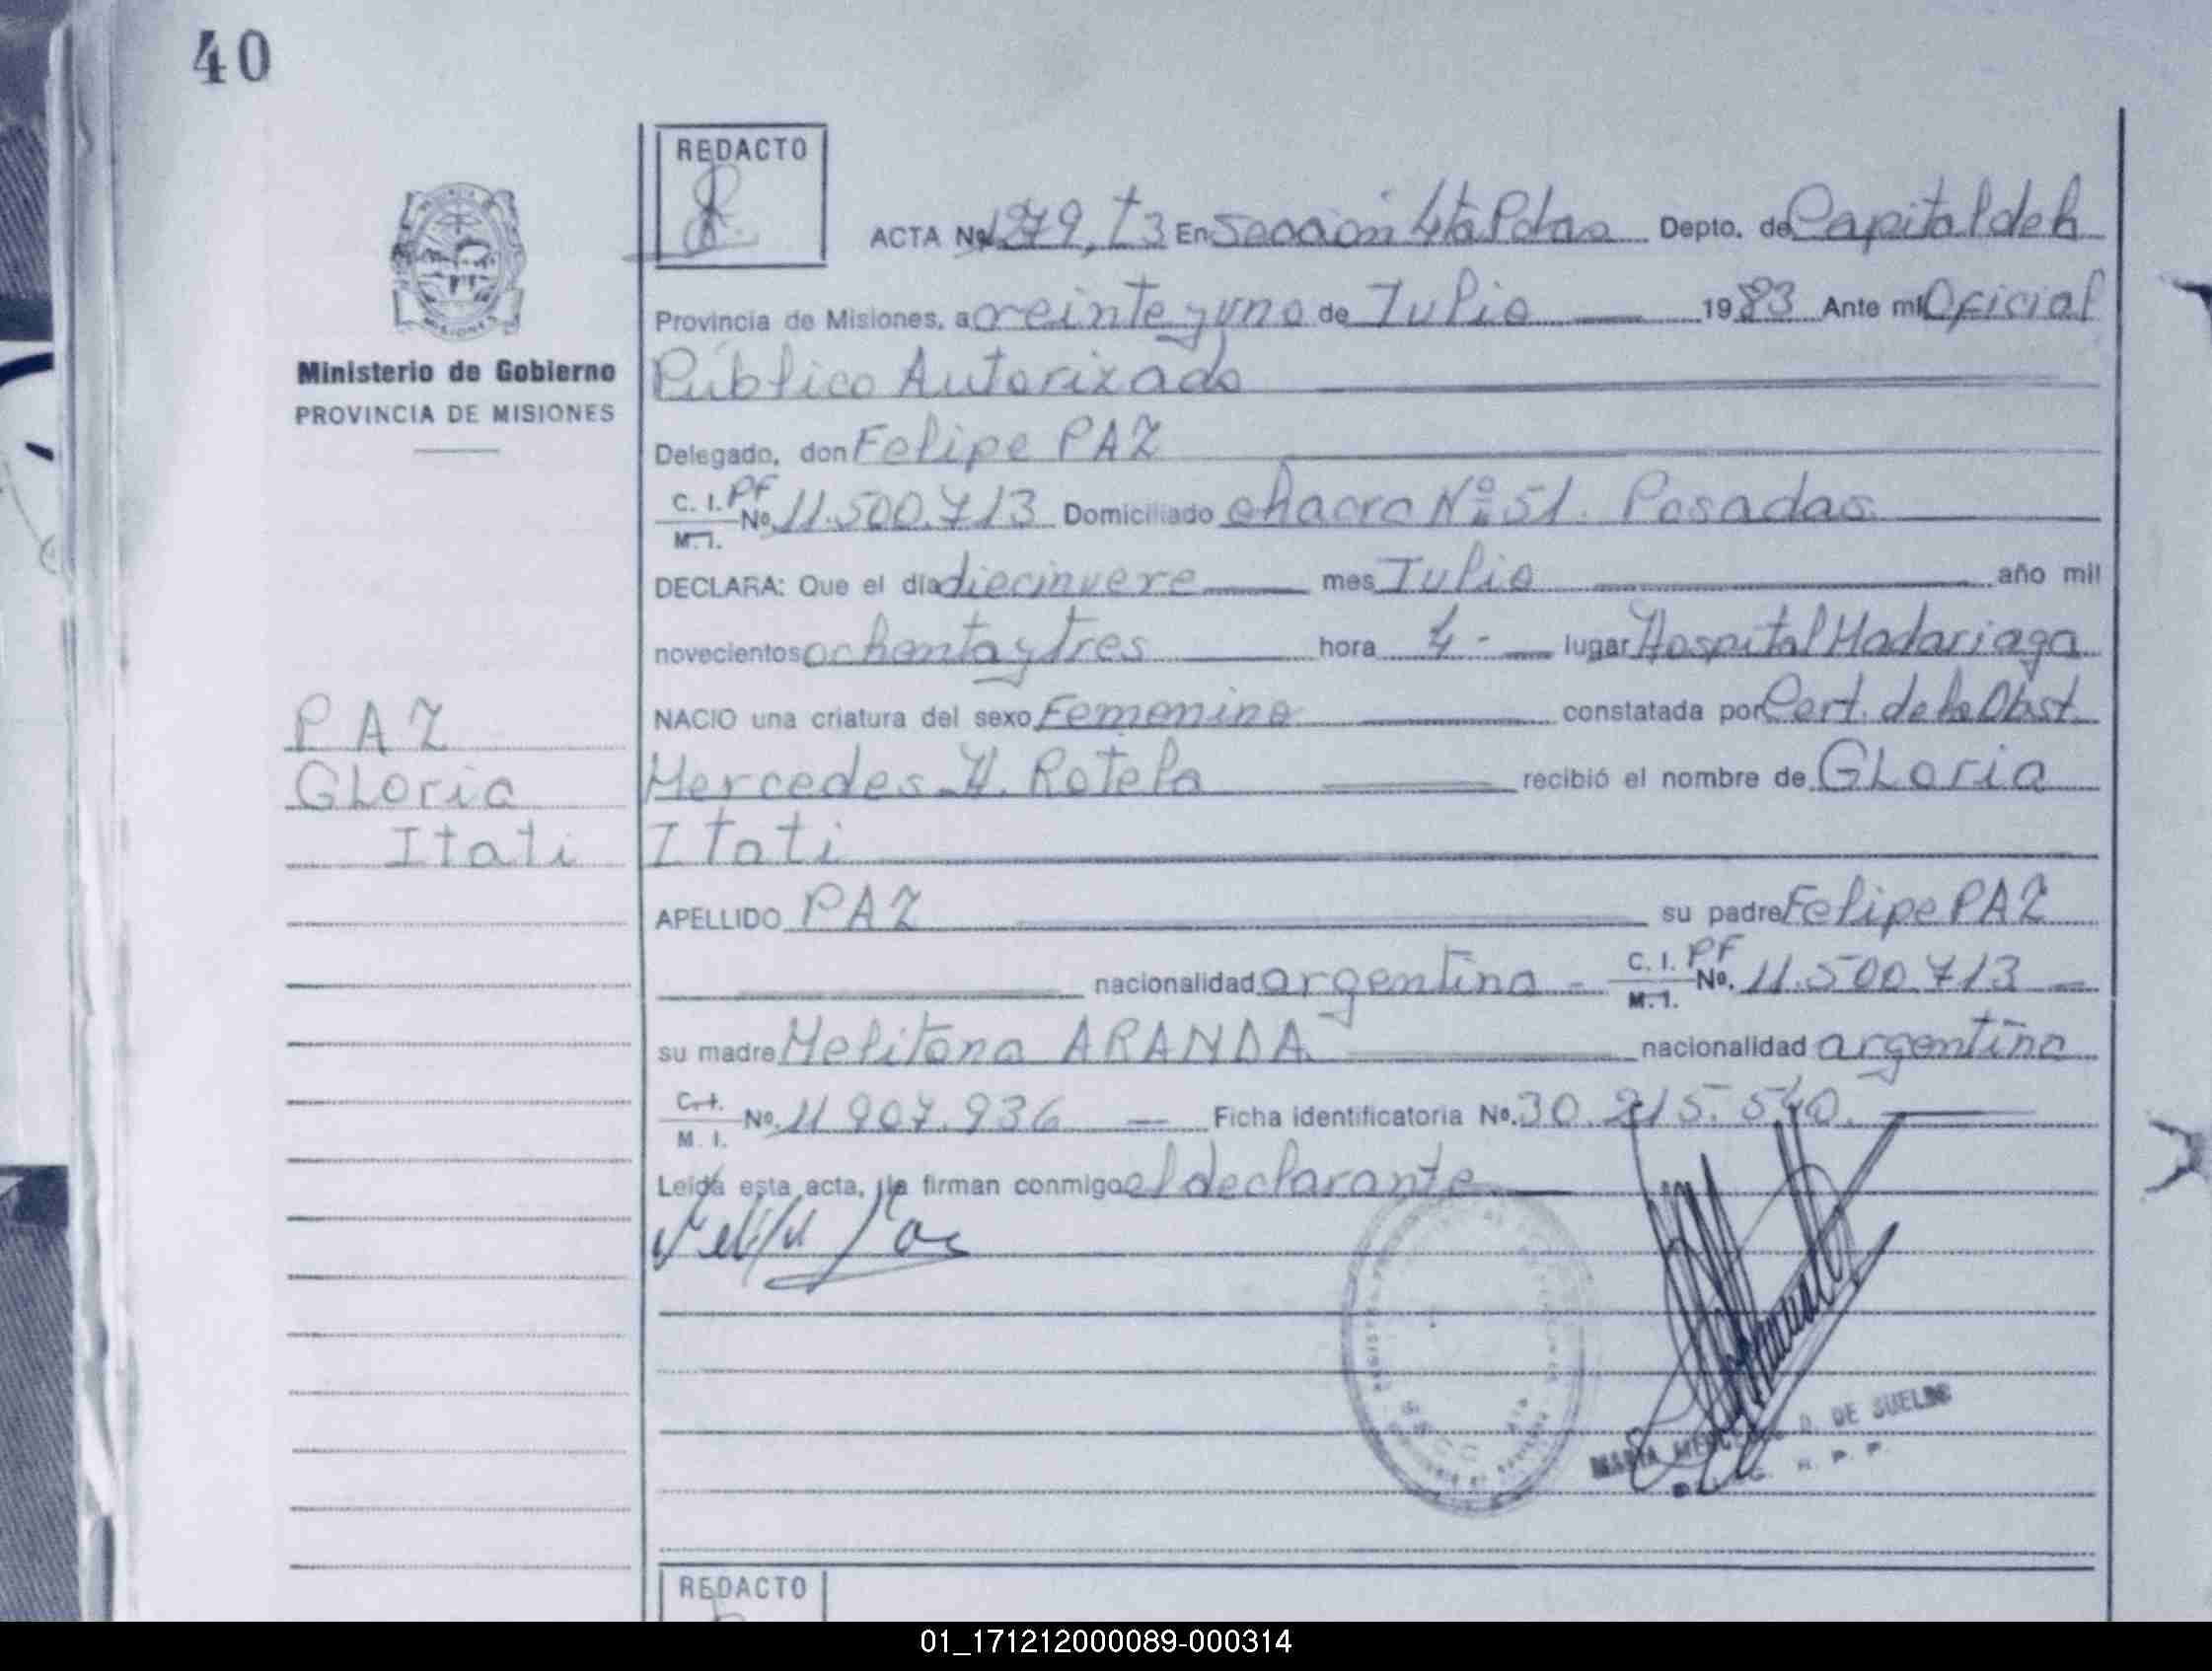 40
REDACTO
ACTA Nº 1279, T3 En Sección 4ta Pdas Depto. de Capital de la
Provincia de Misiones, a veinte y uno de Julio 1983 Ante mi Oficial
Ministerio de Gobierno
PROVINCIA DE MISIONES
Público Autorizado
Delegado, don Felipe PAZ
C. I. PF
M. I. Nº 11.500.713 Domiciliado chacra Nº 51. Posadas
DECLARA: Que el día diecinueve mes Julio año mil
novecientos ochenta y tres hora 4 - lugar Hospital Madariaga
NACIO una criatura del sexo Femenino constatada por Cert. de la Obst
Mercedes H. Rotela recibió el nombre de GLoria
Itati
PAZ
GLoria
Itati
APELLIDO PAZ su padre Felipe PAZ
nacionalidad argentina - C. I. PF
M. I. Nº. 11.500.713 -
su madre Melitona ARANDA nacionalidad argentina
C. I.
M. I. Nº. 11 907.936 - Ficha identificatoria Nº. 30.215.540.
Leida esta acta, la firman conmigo el declarante
Felipe Paz
DE SUELDO
REDACTO
01_171212000089-000314